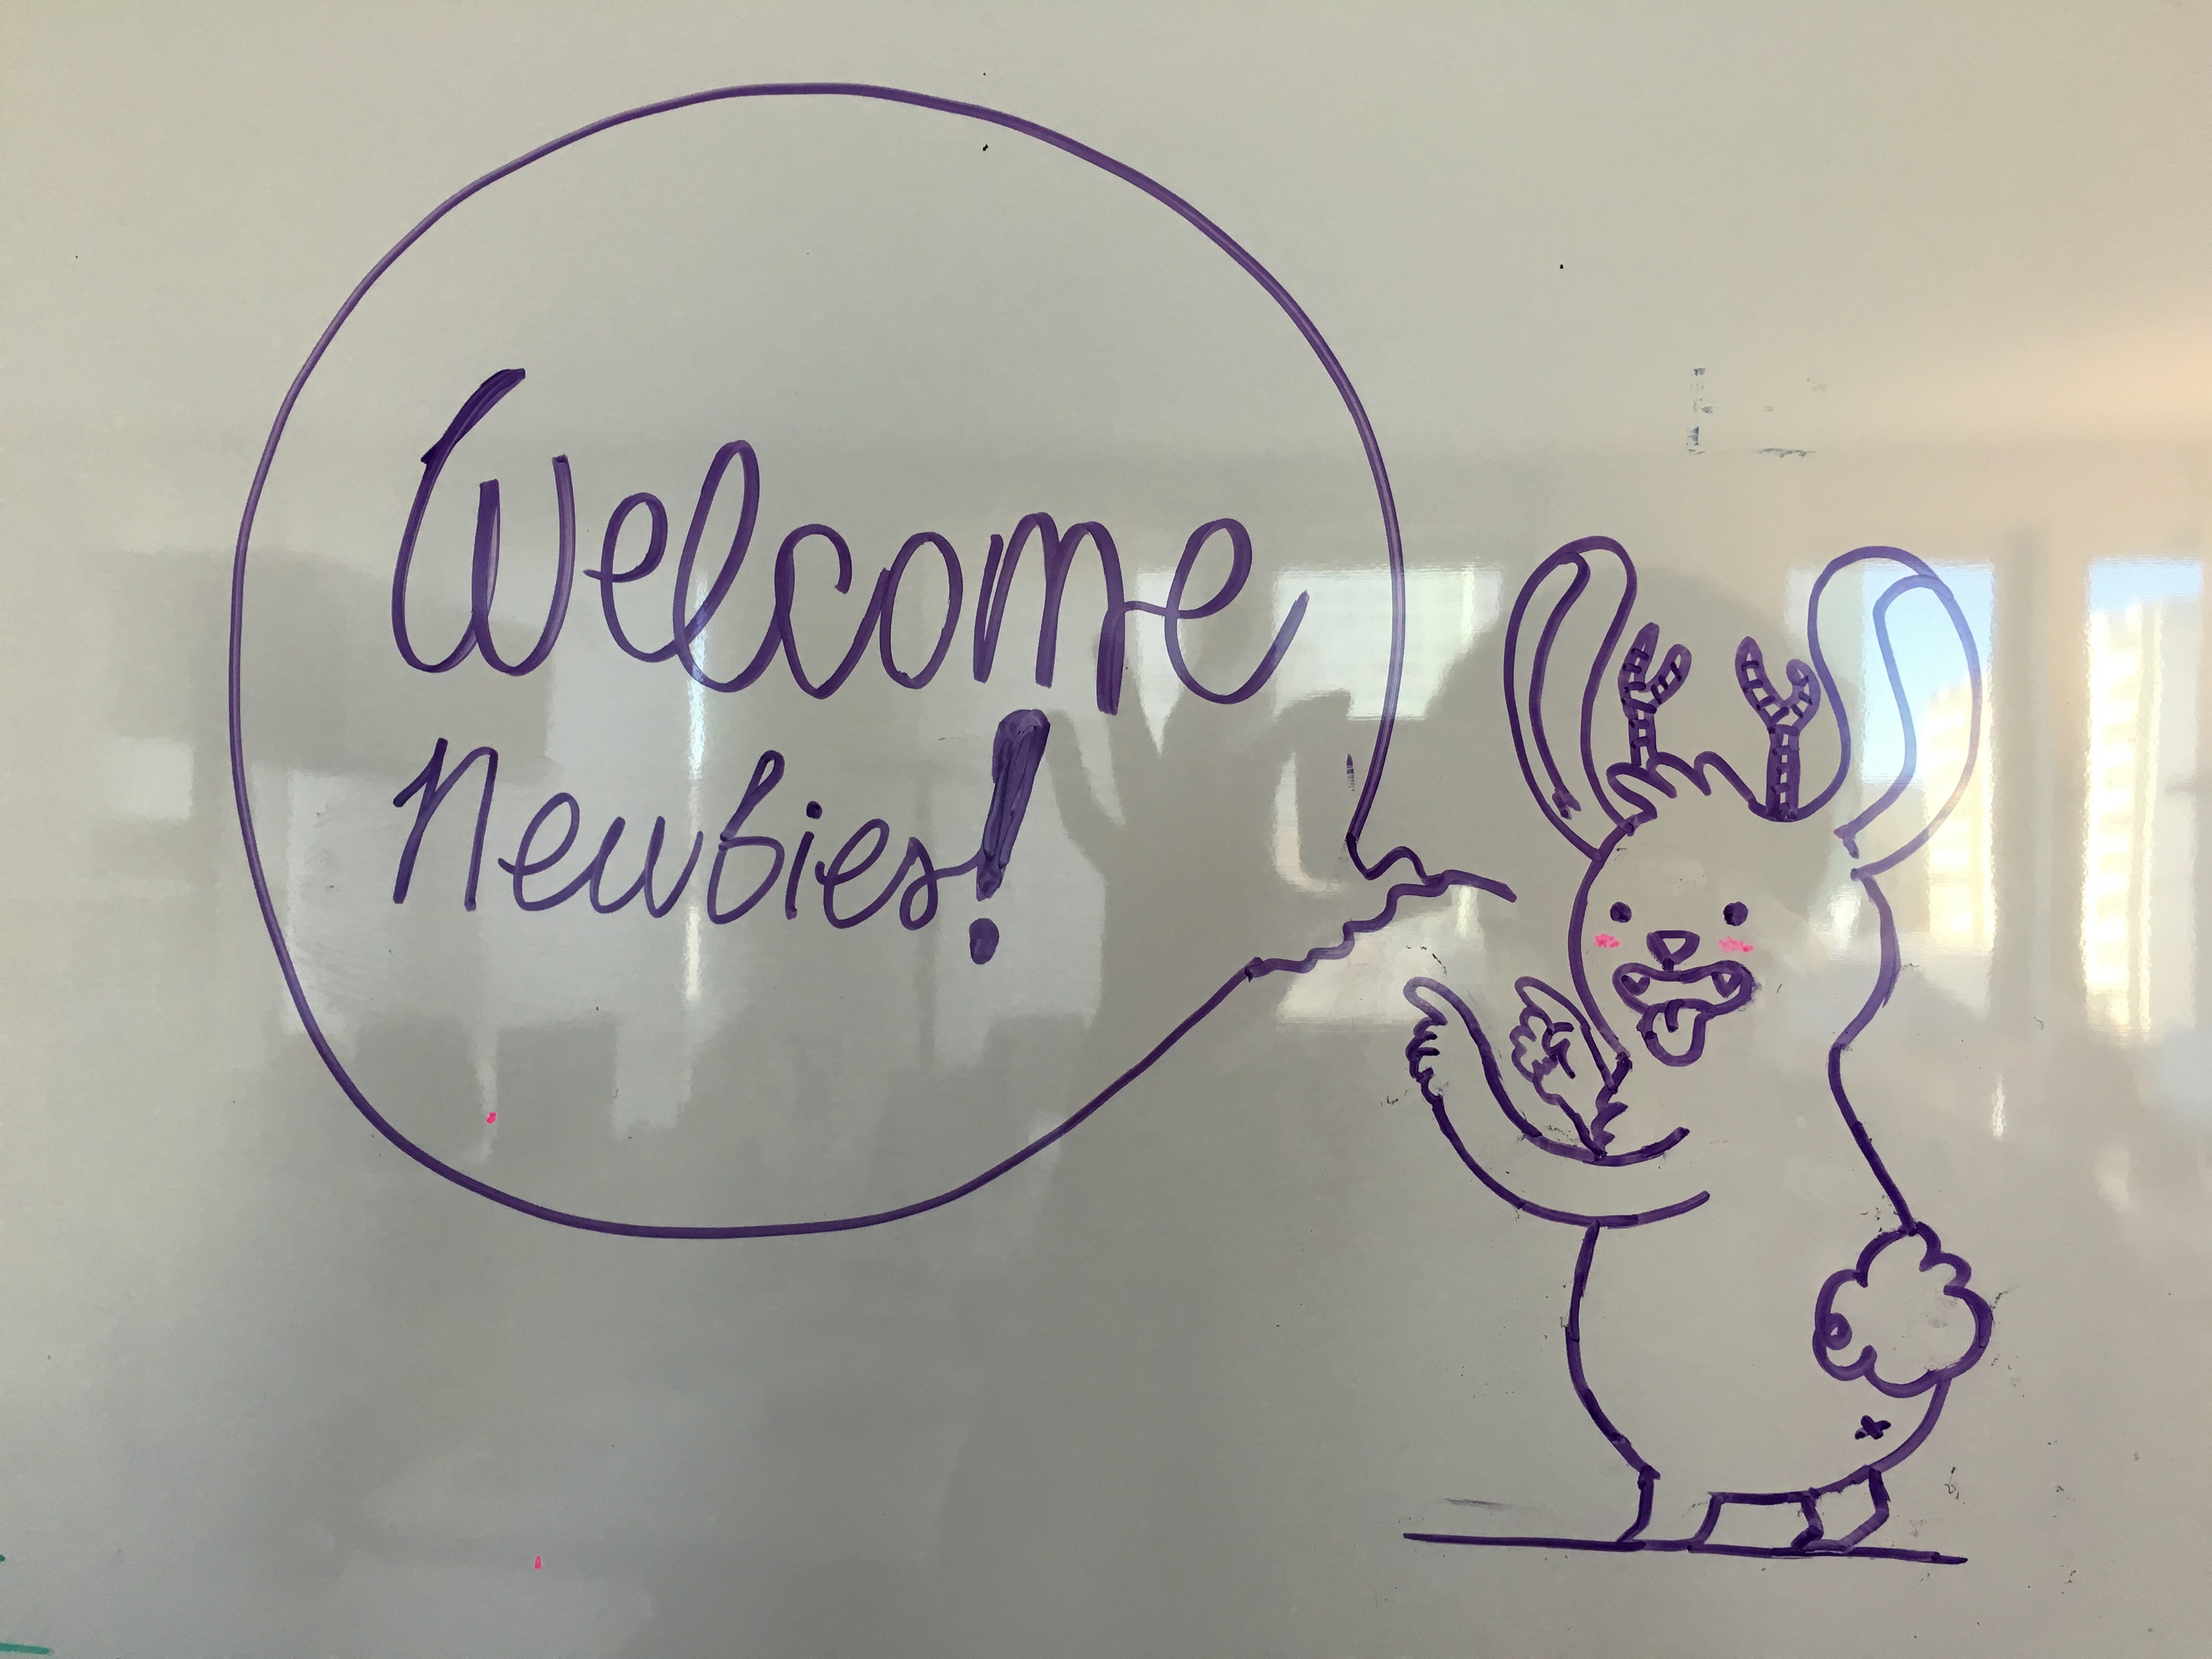 Welcome
Newbies!